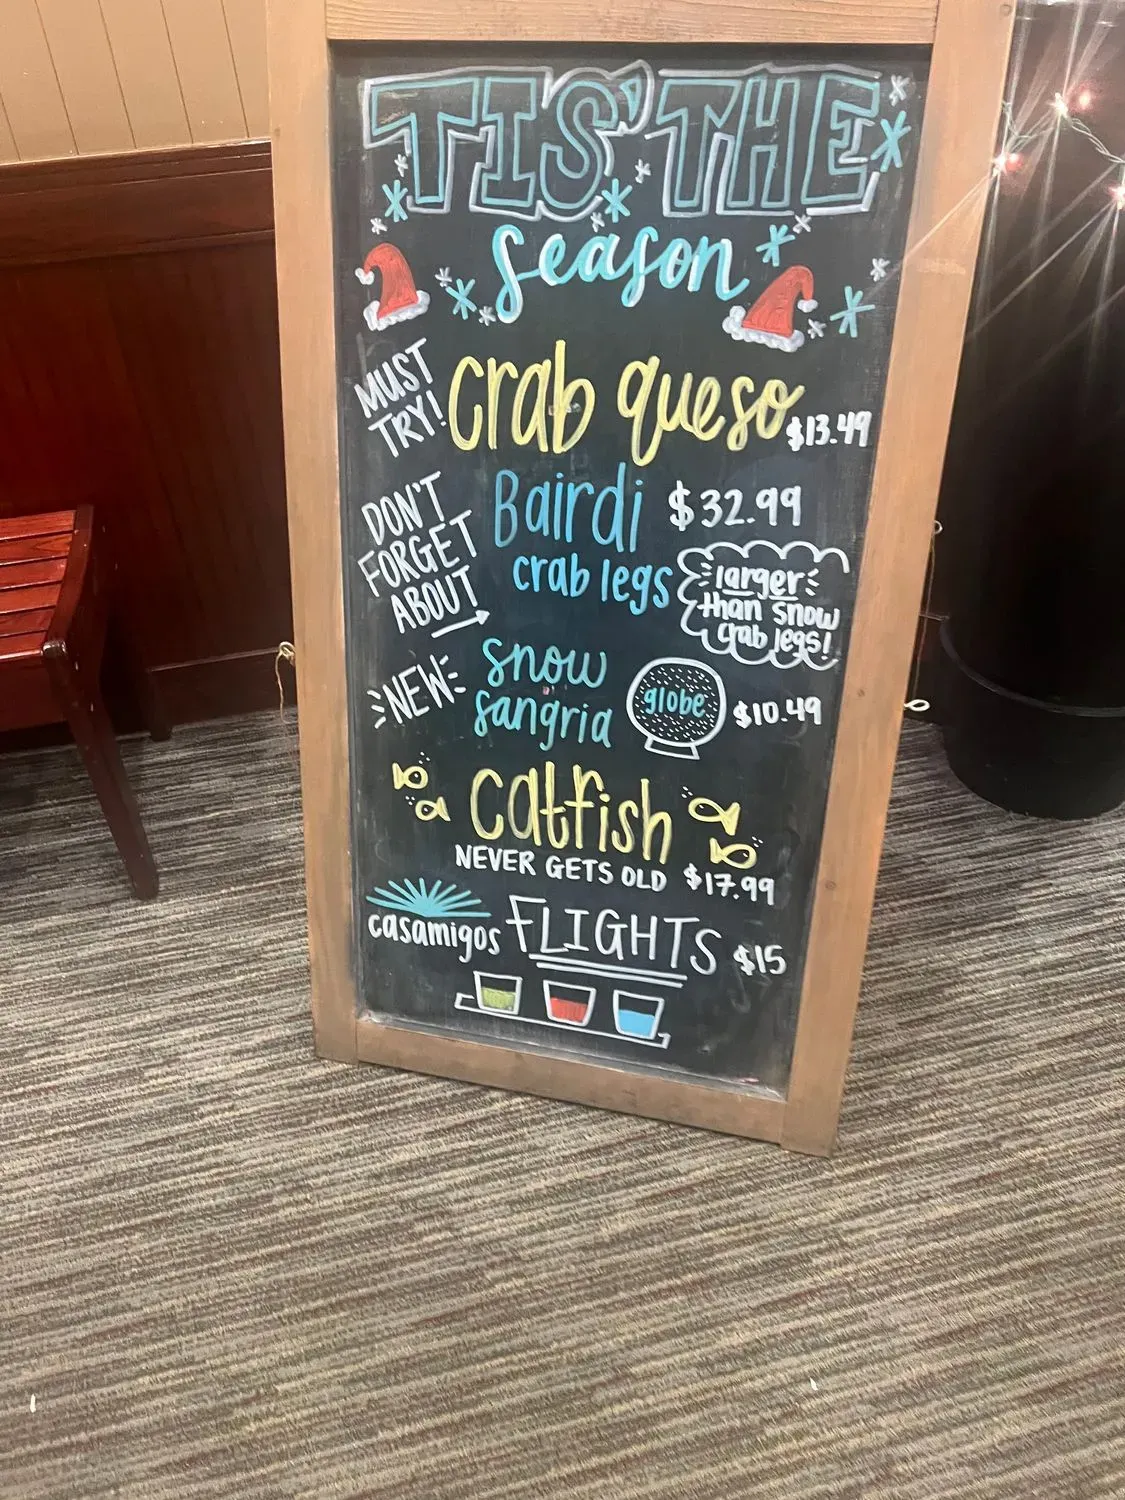 TIS' THE
season
MUST
TRY!
crab queso
$13.49
DON'T
FORGET
ABOUT
Bairdi $32.99
crab legs
larger
than snow
crab legs!
NEW
snow
globe
sangria
$10.49
catfish
NEVER GETS OLD $17.99
casamigos FLIGHTS $15